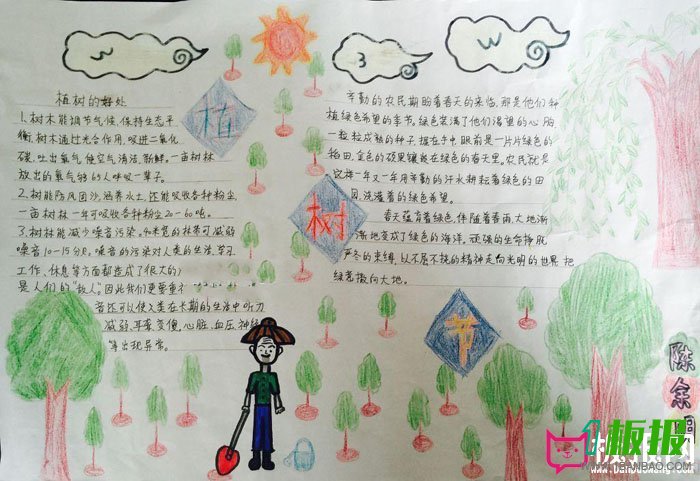 植树的好处
1.树木能调节气候,保持生态平
衡.树木通过光合作用,吸进二氧化
碳,吐出氧气,使空气清洁、新鲜。一亩树林
放出的氧气够65人呼吸一辈子。
2.树能防风固沙,涵养水土,还能吸收各种粉尘,
一亩树林一年可吸收各种粉尘20-60吨。
3.树林能减少噪音污染。40米宽的林带可减弱
噪音10-15分贝。噪音的污染对人类的生活、学习、
工作、休息等方面都造成了很大的
是人们的"敌人",因此我们更要重
音还可以使人类在长期的生活中听力
减弱、耳聋、变傻、心脏、血压、神经
等出现异常。
植
树
节
辛勤的农民期盼着春天的来临,那是他们种
植绿色希望的季节,绿色装满了他们渴望的心胞,
一粒粒成熟的种子,握在手中,眼前是一片片绿色的
稻田,金色的硕果镶嵌在绿色的春天里。农民就是
这样一年又一年用辛勤的汗水耕耘着绿色的田
园,浇灌着的绿色希望。
春天蕴育着绿色,伴随着春雨,大地渐
渐地变成了绿色的海洋。顽强的生命挣脱
严冬的束缚,以不屈不挠的精神走向光明的世界,把
绿意撒向大地。
陈余
板报
WWW.1BANBAO.COM
www.banbaowang.com